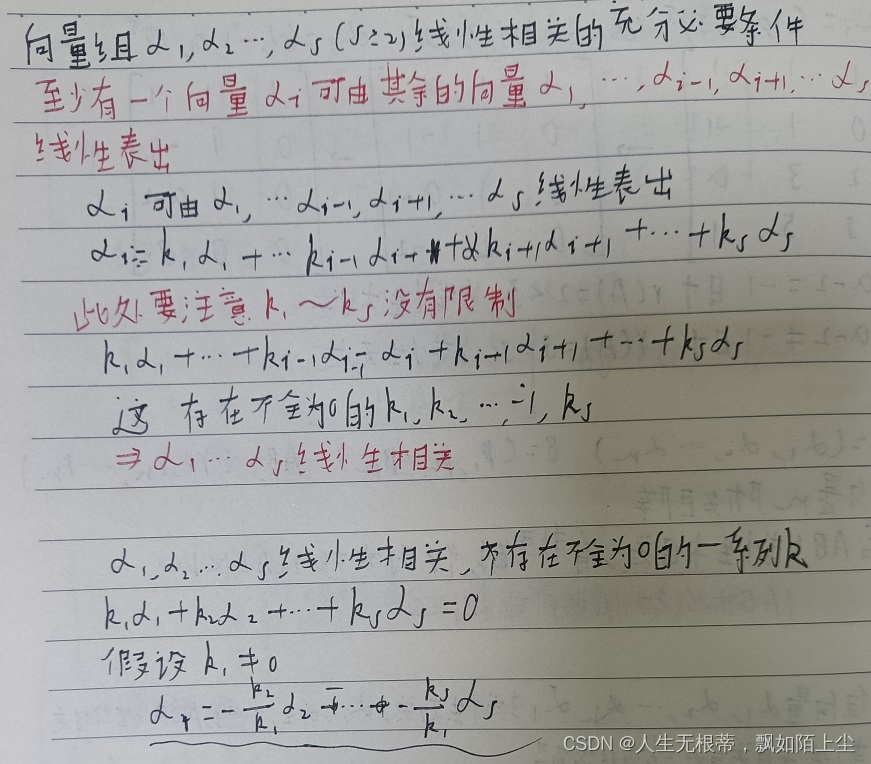 向量组 α₁,α₂…,αs(s≥2)线性相关的充分必要条件
至少有一个向量 αi 可由其余的向量 α₁,…,αi-1,αi+1,…αs
线性表出
αi 可由 α₁,…αi-1,αi+1,…αs 线性表出
αi=k₁α₁+…ki-1αi-1+ki+1αi+1+…+ksαs
此处要注意 k₁~ks 没有限制
k₁α₁+…+ki-1αi-1-αi+ki+1αi+1+…+ksαs
这 存在不全为0的 k₁,k₂,…-1,ks
⇒α₁…αs 线性相关
α₁,α₂…αs 线性相关,存在不全为0的一系列k
k₁α₁+k₂α₂+…+ksαs=0
假设 k₁≠0
α₁=-k₂/k₁ α₂-…-ks/k₁ αs
CSDN @人生无根蒂，飘如陌上尘